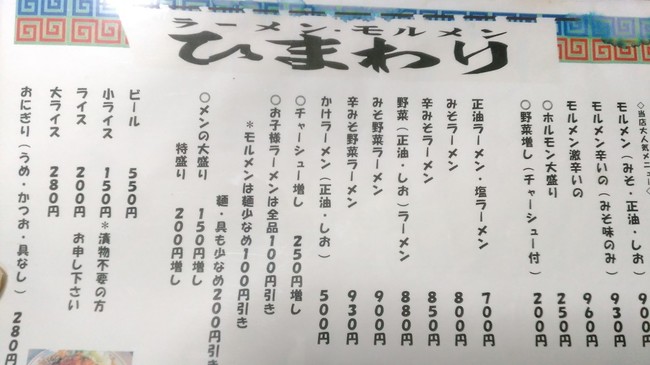 ラーメン・モルメン
ひまわり
◇当店大人気メニュー◇
モルメン(みそ・正油・しお) 900
モルメン辛いの(みそ味のみ) 930円
モルメン激辛いの 960円
○ホルモン大盛り 250円
○野菜増し(チャーシュー付) 200円
正油ラーメン・塩ラーメン 700円
みそラーメン 800円
辛みそラーメン 850円
野菜(正油・しお)ラーメン 880円
みそ野菜ラーメン 900円
辛みそ野菜ラーメン 930円
かけラーメン(正油・しお) 500円
○チャーシュー増し 250円増し
○お子様ラーメンは全品100円引き
*モルメンは麺少なめ100円引き
麺・具も少なめ200円引き
○メンの大盛り 150円増し
特盛り 200円増し
ビール 550円
小ライス 150円 *漬物不要の方
ライス 200円 お申し下さい
大ライス 280円
おにぎり(うめ・かつお・具なし) 280円